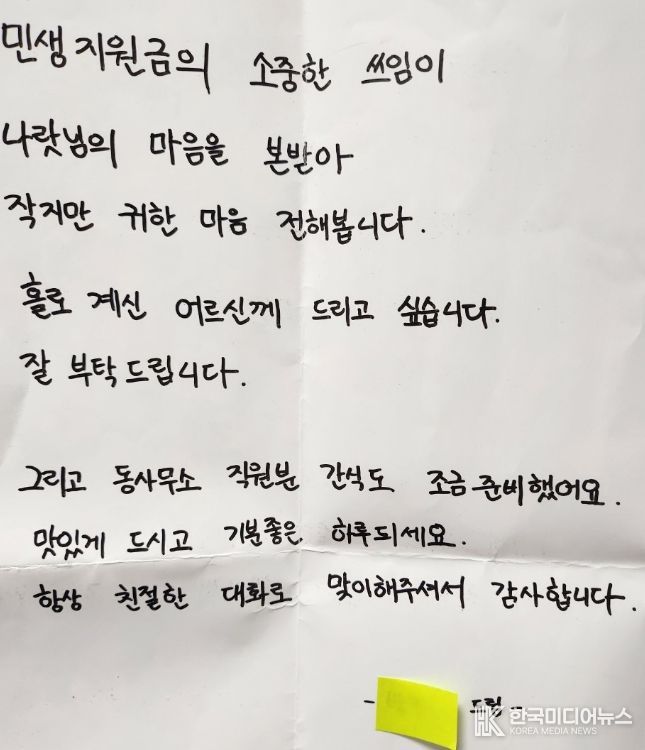 민생지원금의 소중한 쓰임이
나랏님의 마음을 본받아
작지만 귀한 마음 전해봅니다.
홀로 계신 어르신께 드리고 싶습니다.
잘 부탁드립니다.
그리고 동사무소 직원분 간식도 조금 준비했어요.
맛있게 드시고 기분좋은 하루되세요.
항상 친절한 대화로 맞이해주셔서 감사합니다.
- 드림 -
HK 한국미디어뉴스
KOREA MEDIA NEWS